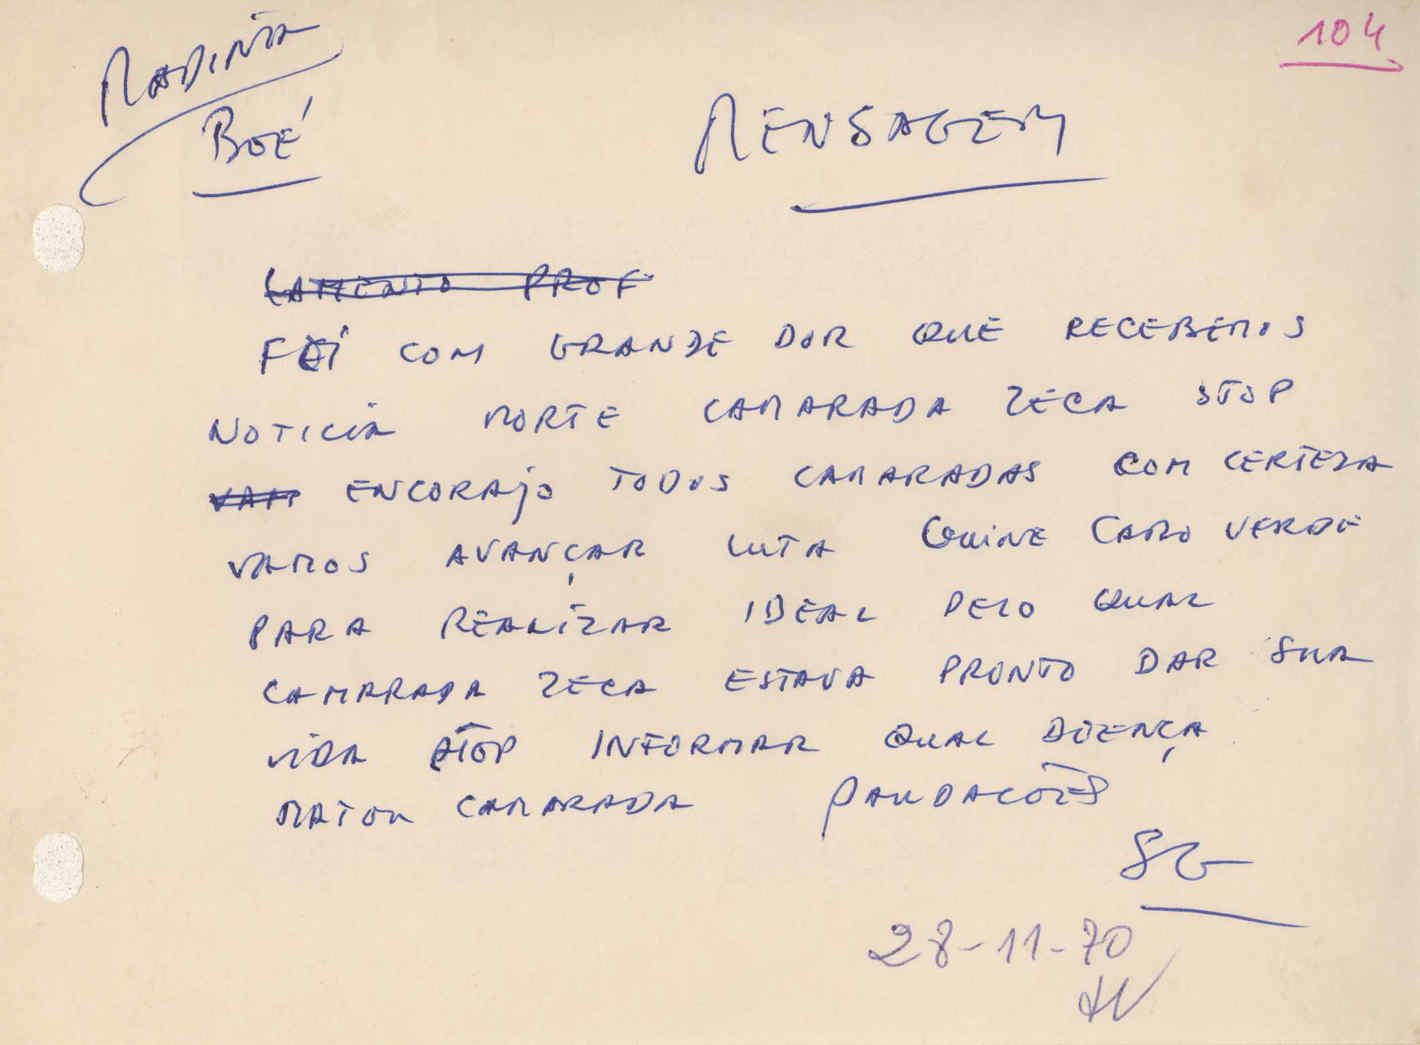 104
MADINA
BOÉ
MENSAGEM
LAMENTO PROF
FOI COM GRANDE DOR QUE RECEBEMOS
NOTICIA MORTE CAMARADA ZECA STOP
VAM ENCORAJO TODOS CAMARADAS COM CERTEZA
VAMOS AVANÇAR LUTA GUINE CABO VERDE
PARA REALIZAR IDEAL PELO QUAL
CAMARADA ZECA ESTAVA PRONTO DAR SUA
VIDA STOP INFORMAR QUAL DOENÇA
MATOU CAMARADA SAUDACÕES
SG
28-11-70